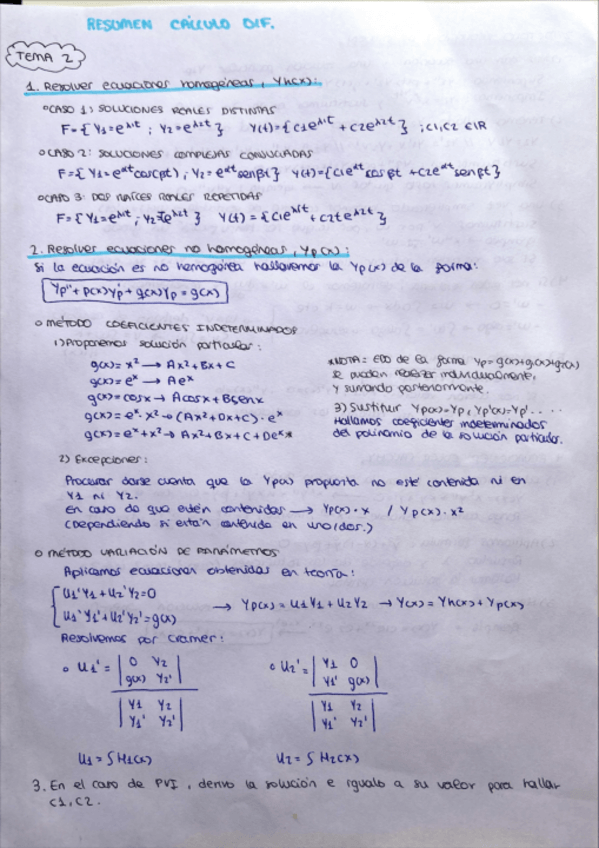 RESUMEN CÁLCULO DIF.
TEMA 2
1. Resolver ecuaciones homogéneas, Yh(x):
○ CASO 1: SOLUCIONES REALES DISTINTAS
F = { Y1 = e^λ1t ; Y2 = e^λ2t }   Y(t) = { C1e^λ1t + C2e^λ2t } ; C1, C2 ∈ IR
○ CASO 2: SOLUCIONES COMPLEJAS CONJUGADAS
F = { Y1 = e^αt cos(βt) ; Y2 = e^αt senβt }   Y(t) = { C1e^αt cosβt + C2e^αt senβt }
○ CASO 3: DOS RAÍCES REALES REPETIDAS
F = { Y1 = e^λt ; Y2 = te^λ2t }   Y(t) = { C1e^λt + C2te^λ2t }
2. Resolver ecuaciones no homogéneas, Yp(x):
Si la ecuación es no homogénea hallaremos la Yp(x) de la forma:
Yp'' + p(x)Yp' + q(x)Yp = g(x)
○ MÉTODO COEFICIENTES INDETERMINADOS
1) Proponemos solución particular:
g(x) = x² → Ax² + Bx + C
g(x) = e^x → Ae^x
g(x) = cosx → Acosx + Bsenx
g(x) = e^x · x² → (Ax² + Bx + C) · e^x
g(x) = e^x + x² → Ax² + Bx + C + De^x *
*NOTA: EDO de la forma Yp = g(x) + g(x) + g(x)
se pueden resolver individualmente,
y sumando posteriormente.
3) Sustituir Yp(x) = Yp, Yp'(x) = Yp' ....
Hallamos coeficientes indeterminados
del polinomio de la solución particular.
2) Excepciones:
Procurar darse cuenta que la Yp(x) propuesta no esté contenida ni en
Y1 ni Y2.
En caso de que estén contenidas → Yp(x) · x / Yp(x) · x²
(dependiendo si están contenida en uno/dos.)
○ MÉTODO VARIACIÓN DE PARÁMETROS
Aplicamos ecuaciones obtenidas en teoría:
U1'Y1 + U2'Y2 = 0
U1'Y1' + U2'Y2' = g(x)
→ Yp(x) = U1Y1 + U2Y2 → Y(x) = Yh(x) + Yp(x)
Resolvemos por Cramer:
○ U1' = | 0 Y2 |   ○ U2' = | Y1 0 |
| g(x) Y2' |   | Y1' g(x) |
| Y1 Y2 |   | Y1 Y2 |
| Y1' Y2' |   | Y1' Y2' |
U1 = ∫ H1(x)   U2 = ∫ H2(x)
3. En el caso de PVI, derivo la solución e igualo a su valor para hallar
C1, C2.